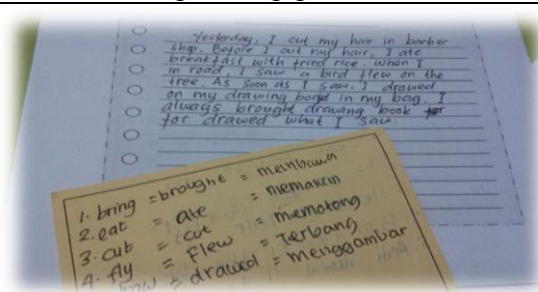 Yesterday, I cut my hair in barber
shop. Before I cut my hair, I ate
breakfast with fried rice. when I
in road, I saw a bird flew on the
tree. As soon as I saw, I drawed
on my drawing book in my bag. I
always brought drawing book
for drawed what I saw.
1. bring = brought = membawa
2. eat = ate = memakan
3. cut = cut = memotong
4. fly = Flew = Terbang
= drawed = menggambar